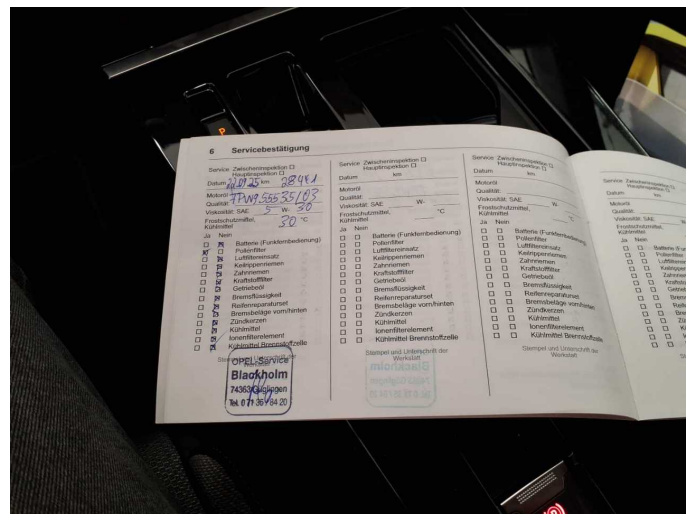 P
6 Servicebestätigung
Service Zwischeninspektion ☐
Hauptinspektion ☐
Datum 22.01.25 km 28481
Motoröl
Qualität:
Viskosität: SAE 5 W- 30
Frostschutzmittel,
Kühlmittel 30 °C
Ja Nein
Batterie (Funkfernbedienung)
Pollenfilter
Luftfiltereinsatz
Keilrippenriemen
Zahnriemen
Kraftstofffilter
Getriebeöl
Bremsflüssigkeit
Reifenreparaturset
Bremsbeläge vorn/hinten
Zündkerzen
Kühlmittel
Ionenfilterelement
Kühlmittel Brennstoffzelle
Stempel und Unterschrift der
Werkstatt
OPEL-Service
Blackholm
74363 Güglingen
Tel. 0 71 35 / 84 20
Service Zwischeninspektion ☐
Hauptinspektion ☐
Datum km
Motoröl
Qualität:
Viskosität: SAE W-
Frostschutzmittel,
Kühlmittel °C
Ja Nein
Batterie (Funkfernbedienung)
Pollenfilter
Luftfiltereinsatz
Keilrippenriemen
Zahnriemen
Kraftstofffilter
Getriebeöl
Bremsflüssigkeit
Reifenreparaturset
Bremsbeläge vorn/hinten
Zündkerzen
Kühlmittel
Ionenfilterelement
Kühlmittel Brennstoffzelle
Stempel und Unterschrift der
Werkstatt
Service Zwischeninspektion ☐
Hauptinspektion ☐
Datum km
Motoröl
Qualität:
Viskosität: SAE W-
Frostschutzmittel,
Kühlmittel °C
Ja Nein
Batterie (Funkfernbedienung)
Pollenfilter
Luftfiltereinsatz
Keilrippenriemen
Zahnriemen
Kraftstofffilter
Getriebeöl
Bremsflüssigkeit
Reifenreparaturset
Bremsbeläge vorn/hinten
Zündkerzen
Kühlmittel
Ionenfilterelement
Kühlmittel Brennstoffzelle
Stempel und Unterschrift der
Werkstatt
Service Zwischeninspektion ☐
Hauptinspektion ☐
Datum km
Motoröl
Qualität:
Viskosität: SAE W-
Frostschutzmittel,
Kühlmittel
Ja Nein
Pollenfilter